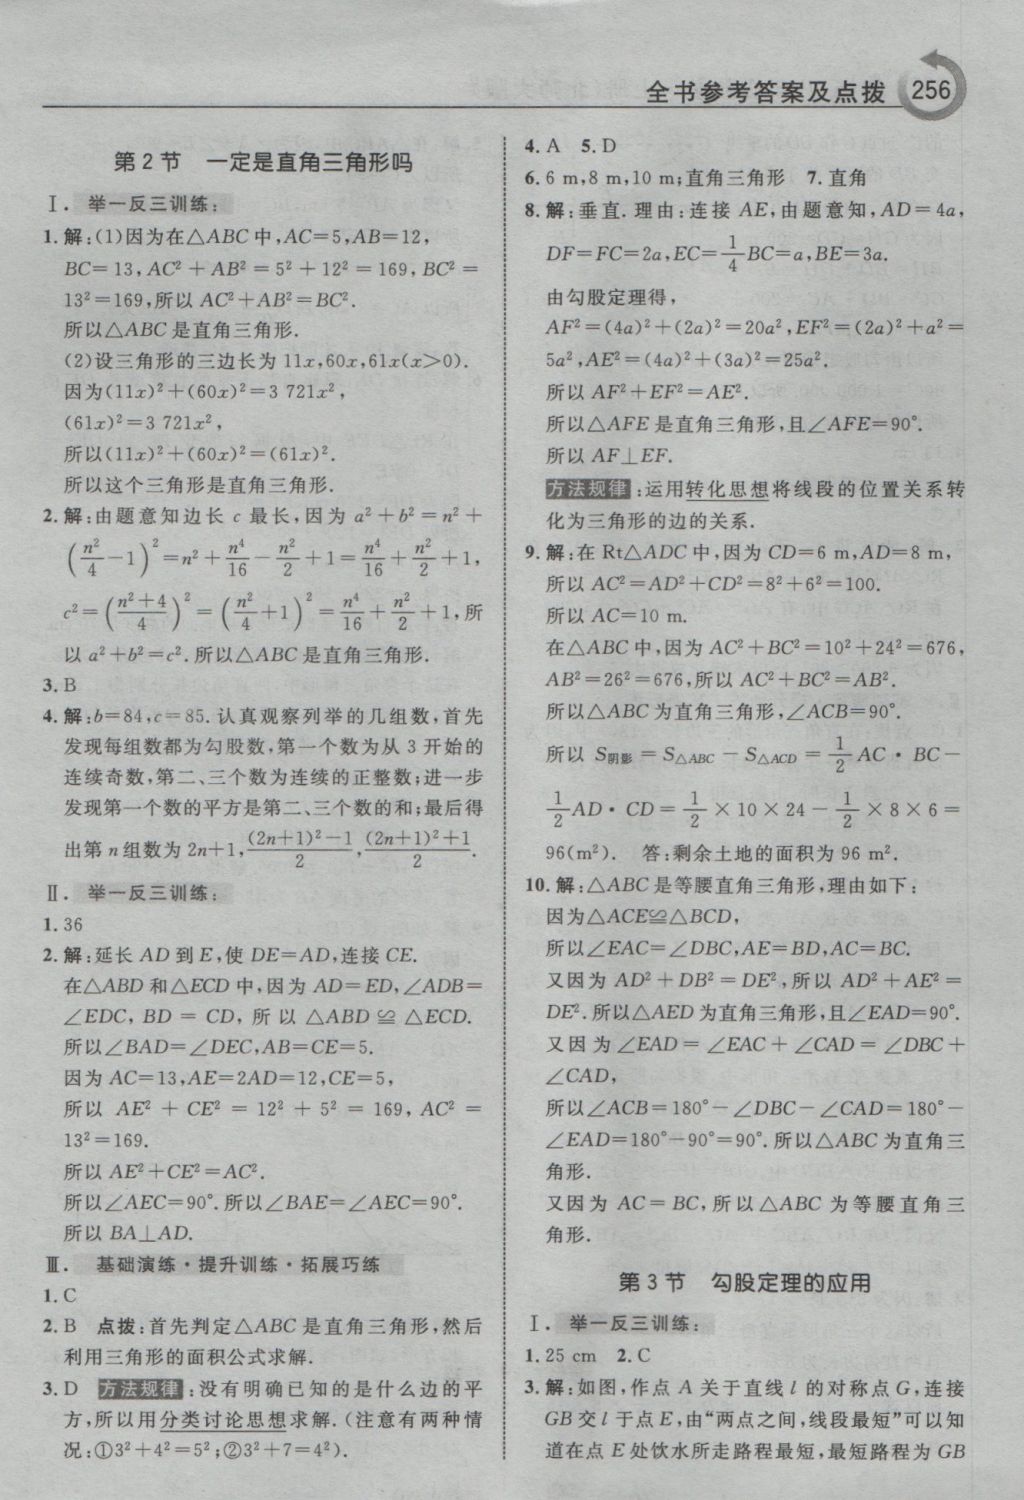 全书参考答案及点拨 256
第2节 一定是直角三角形吗
Ⅰ. 举一反三训练:
1.解:(1)因为在△ABC中,AC=5,AB=12,
BC=13,AC²+AB²=5²+12²=169,BC²=
13²=169,所以 AC²+AB²=BC².
所以△ABC是直角三角形.
(2)设三角形的三边长为11x,60x,61x(x>0).
因为(11x)²+(60x)²=3 721x²,
(61x)²=3 721x²,
所以(11x)²+(60x)²=(61x)².
所以这个三角形是直角三角形.
2.解:由题意知边长 c 最长,因为 a²+b²=n²+
(n²/4-1)²=n²+n⁴/16-n²/2+1=n⁴/16+n²/2+1,
c²=((n²+4)/4)²=(n²/4+1)²=n⁴/16+n²/2+1,所
以 a²+b²=c².所以△ABC是直角三角形.
3.B
4.解:b=84,c=85.认真观察列举的几组数,首先
发现每组数都为勾股数,第一个数为从3开始的
连续奇数,第二、三个数为连续的正整数;进一步
发现第一个数的平方是第二、三个数的和;最后得
出第 n 组数为 2n+1,((2n+1)²-1)/2,((2n+1)²+1)/2.
Ⅱ. 举一反三训练:
1.36
2.解:延长 AD 到 E,使 DE=AD,连接 CE.
在△ABD和△ECD中,因为 AD=ED,∠ADB=
∠EDC,BD=CD,所以△ABD≌△ECD.
所以∠BAD=∠DEC,AB=CE=5.
因为 AC=13,AE=2AD=12,CE=5,
所以 AE²+CE²=12²+5²=169,AC²=
13²=169.
所以 AE²+CE²=AC².
所以∠AEC=90°.所以∠BAE=∠AEC=90°.
所以 BA⊥AD.
Ⅲ. 基础演练·提升训练·拓展巧练
1.C
2.B 点拨:首先判定△ABC是直角三角形,然后
利用三角形的面积公式求解.
3.D 方法规律:没有明确已知的是什么边的平
方,所以用分类讨论思想求解.(注意有两种情
况:①3²+4²=5²;②3²+7=4²).
4.A 5.D
6.6 m,8 m,10 m;直角三角形 7.直角
8.解:垂直.理由:连接 AE,由题意知,AD=4a,
DF=FC=2a,EC=1/4BC=a,BE=3a.
由勾股定理得,
AF²=(4a)²+(2a)²=20a²,EF²=(2a)²+a²=
5a²,AE²=(4a)²+(3a)²=25a².
所以 AF²+EF²=AE².
所以△AFE是直角三角形,且∠AFE=90°.
所以 AF⊥EF.
方法规律:运用转化思想将线段的位置关系转
化为三角形的边的关系.
9.解:在 Rt△ADC中,因为 CD=6 m,AD=8 m,
所以 AC²=AD²+CD²=8²+6²=100.
所以 AC=10 m.
在△ABC中,因为 AC²+BC²=10²+24²=676,
AB²=26²=676,所以 AC²+BC²=AB².
所以△ABC为直角三角形,∠ACB=90°.
所以 S阴影=S△ABC-S△ACD=1/2AC·BC-
1/2AD·CD=1/2×10×24-1/2×8×6=
96(m²). 答:剩余土地的面积为 96 m².
10.解:△ABC是等腰直角三角形,理由如下:
因为△ACE≌△BCD,
所以∠EAC=∠DBC,AE=BD,AC=BC.
又因为 AD²+DB²=DE²,所以 AD²+AE²=
DE².所以△AED为直角三角形,且∠EAD=90°.
又因为∠EAD=∠EAC+∠CAD=∠DBC+
∠CAD,
所以∠ACB=180°-∠DBC-∠CAD=180°-
∠EAD=180°-90°=90°.所以△ABC为直角三
角形.
又因为 AC=BC,所以△ABC为等腰直角三
角形.
第3节 勾股定理的应用
Ⅰ. 举一反三训练:
1.25 cm 2.C
3.解:如图,作点 A 关于直线 l 的对称点 G,连接
GB 交 l 于点 E,由“两点之间,线段最短”可以知
道在点 E 处饮水所走路程最短,最短路程为 GB